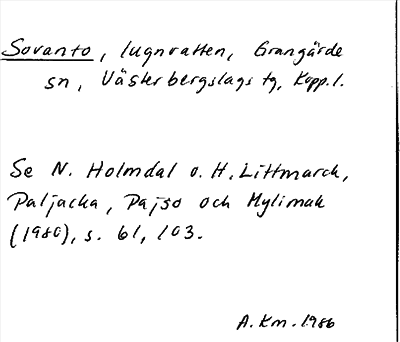 Sovanto, lugnvatten, Grangärde
sn, Västerbergslags tg, Kopp.l.
Se N. Holmdal o. H. Littmarck,
Paljacka, Pajso och Mylimak
(1980), s. 61, 103.
A.Km. 1986